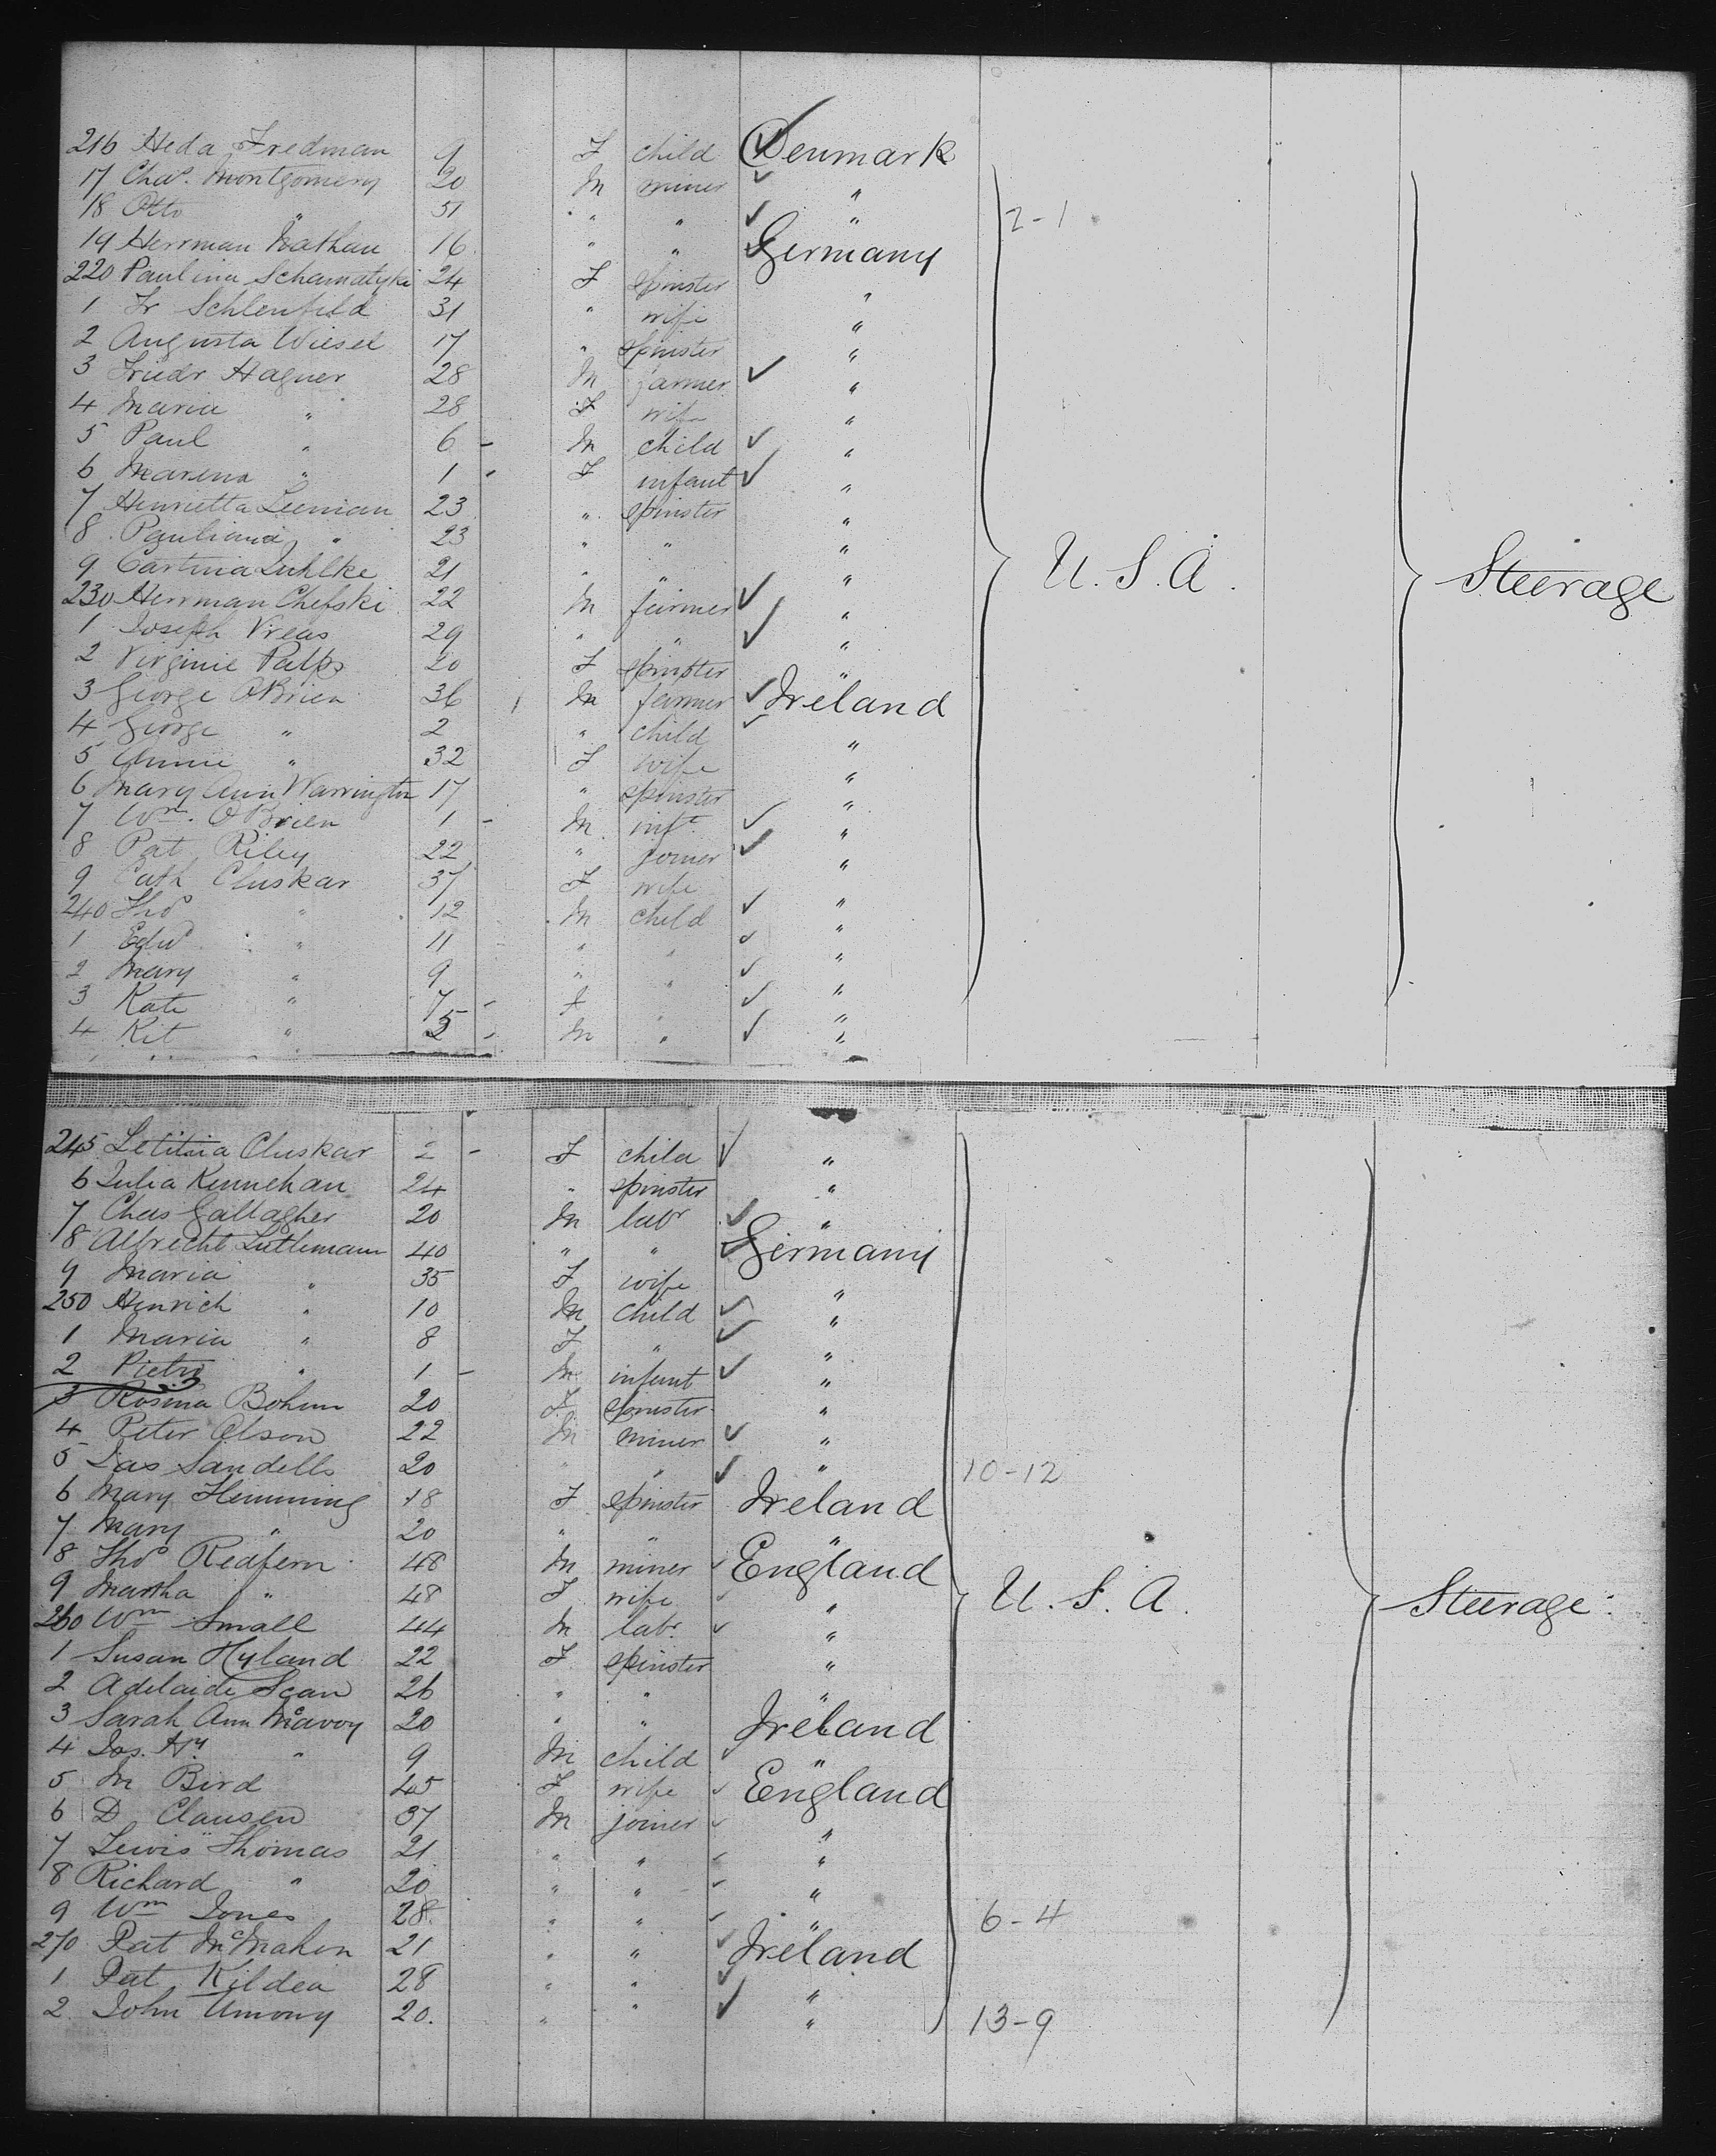 216 Heda Fredman 9 F child Denmark
17 Chas. Montgomery 20 M miner "
18 Otto " 51 " " " 2-1
19 Herrman Nathan 16 " " Germany
220 Paulina Schamatyki 24 F spinster "
1 Fr Schlenfeld 31 " wife "
2 Augusta Wiesel 17 " spinster "
3 Friedr Hagner 28 M farmer "
4 Maria " 28 F wife "
5 Paul " 6 - M child "
6 Marena " 1 - F infant "
7 Henrietta Leeman 23 " spinster "
8 Pauliana " 23 " " "
9 Cartina Luhlke 21 " " " U. S. A. Steerage
230 Herrman Chefski 22 M farmer "
1 Joseph Vreas 29 " " "
2 Virginie Palps 20 F spinster "
3 George OBrien 36 M farmer Ireland
4 George " 2 " child "
5 Annie " 32 F wife "
6 Mary Ann Warrington 17 " spinster "
7 Wm. OBrien 1 - M inft "
8 Pat Riley 22 " joiner "
9 Cath Cluskar 37 F wife "
240 Thos " 12 M child "
1 Edwd " 11 " " "
2 Mary " 9 " " "
3 Kate " 7 - F " "
4 Kit " 5 - M " "
245 Letitsia Cluskar 2 - F child "
6 Julia Kennehan 24 " spinster "
7 Chas Gallagher 20 M labr "
8 Albrecht Luthmann 40 " " Germany
9 Maria " 35 F wife "
250 Henrich " 10 M child "
1 Maria " 8 F " "
2 Pietro " 1 - M infant "
3 Rosina Bohm 20 F spinster "
4 Peter Olson 22 M miner "
5 Jas Sandells 20 " " " 10-12
6 Mary Hemming 18 F spinster Ireland
7 Mary " 20 " " "
8 Thos Redfern 48 M miner England
9 Martha " 48 F wife " U. S. A. Steerage
260 Wm Small 44 M labr "
1 Susan Hyland 22 F spinster "
2 Adelaide Scan 26 " " "
3 Sarah Ann McAvoy 20 " " Ireland
4 Jos. Hy " 9 M child "
5 M Bird 45 F wife England
6 D Clausen 37 M joiner "
7 Lewis Thomas 21 " " "
8 Richard " 20 " " "
9 Wm Jones 28 " " " 6-4
270 Pat McMahon 21 " " Ireland
1 Pat Kildea 28 " " "
2 John Umony 20. " " " 13-9